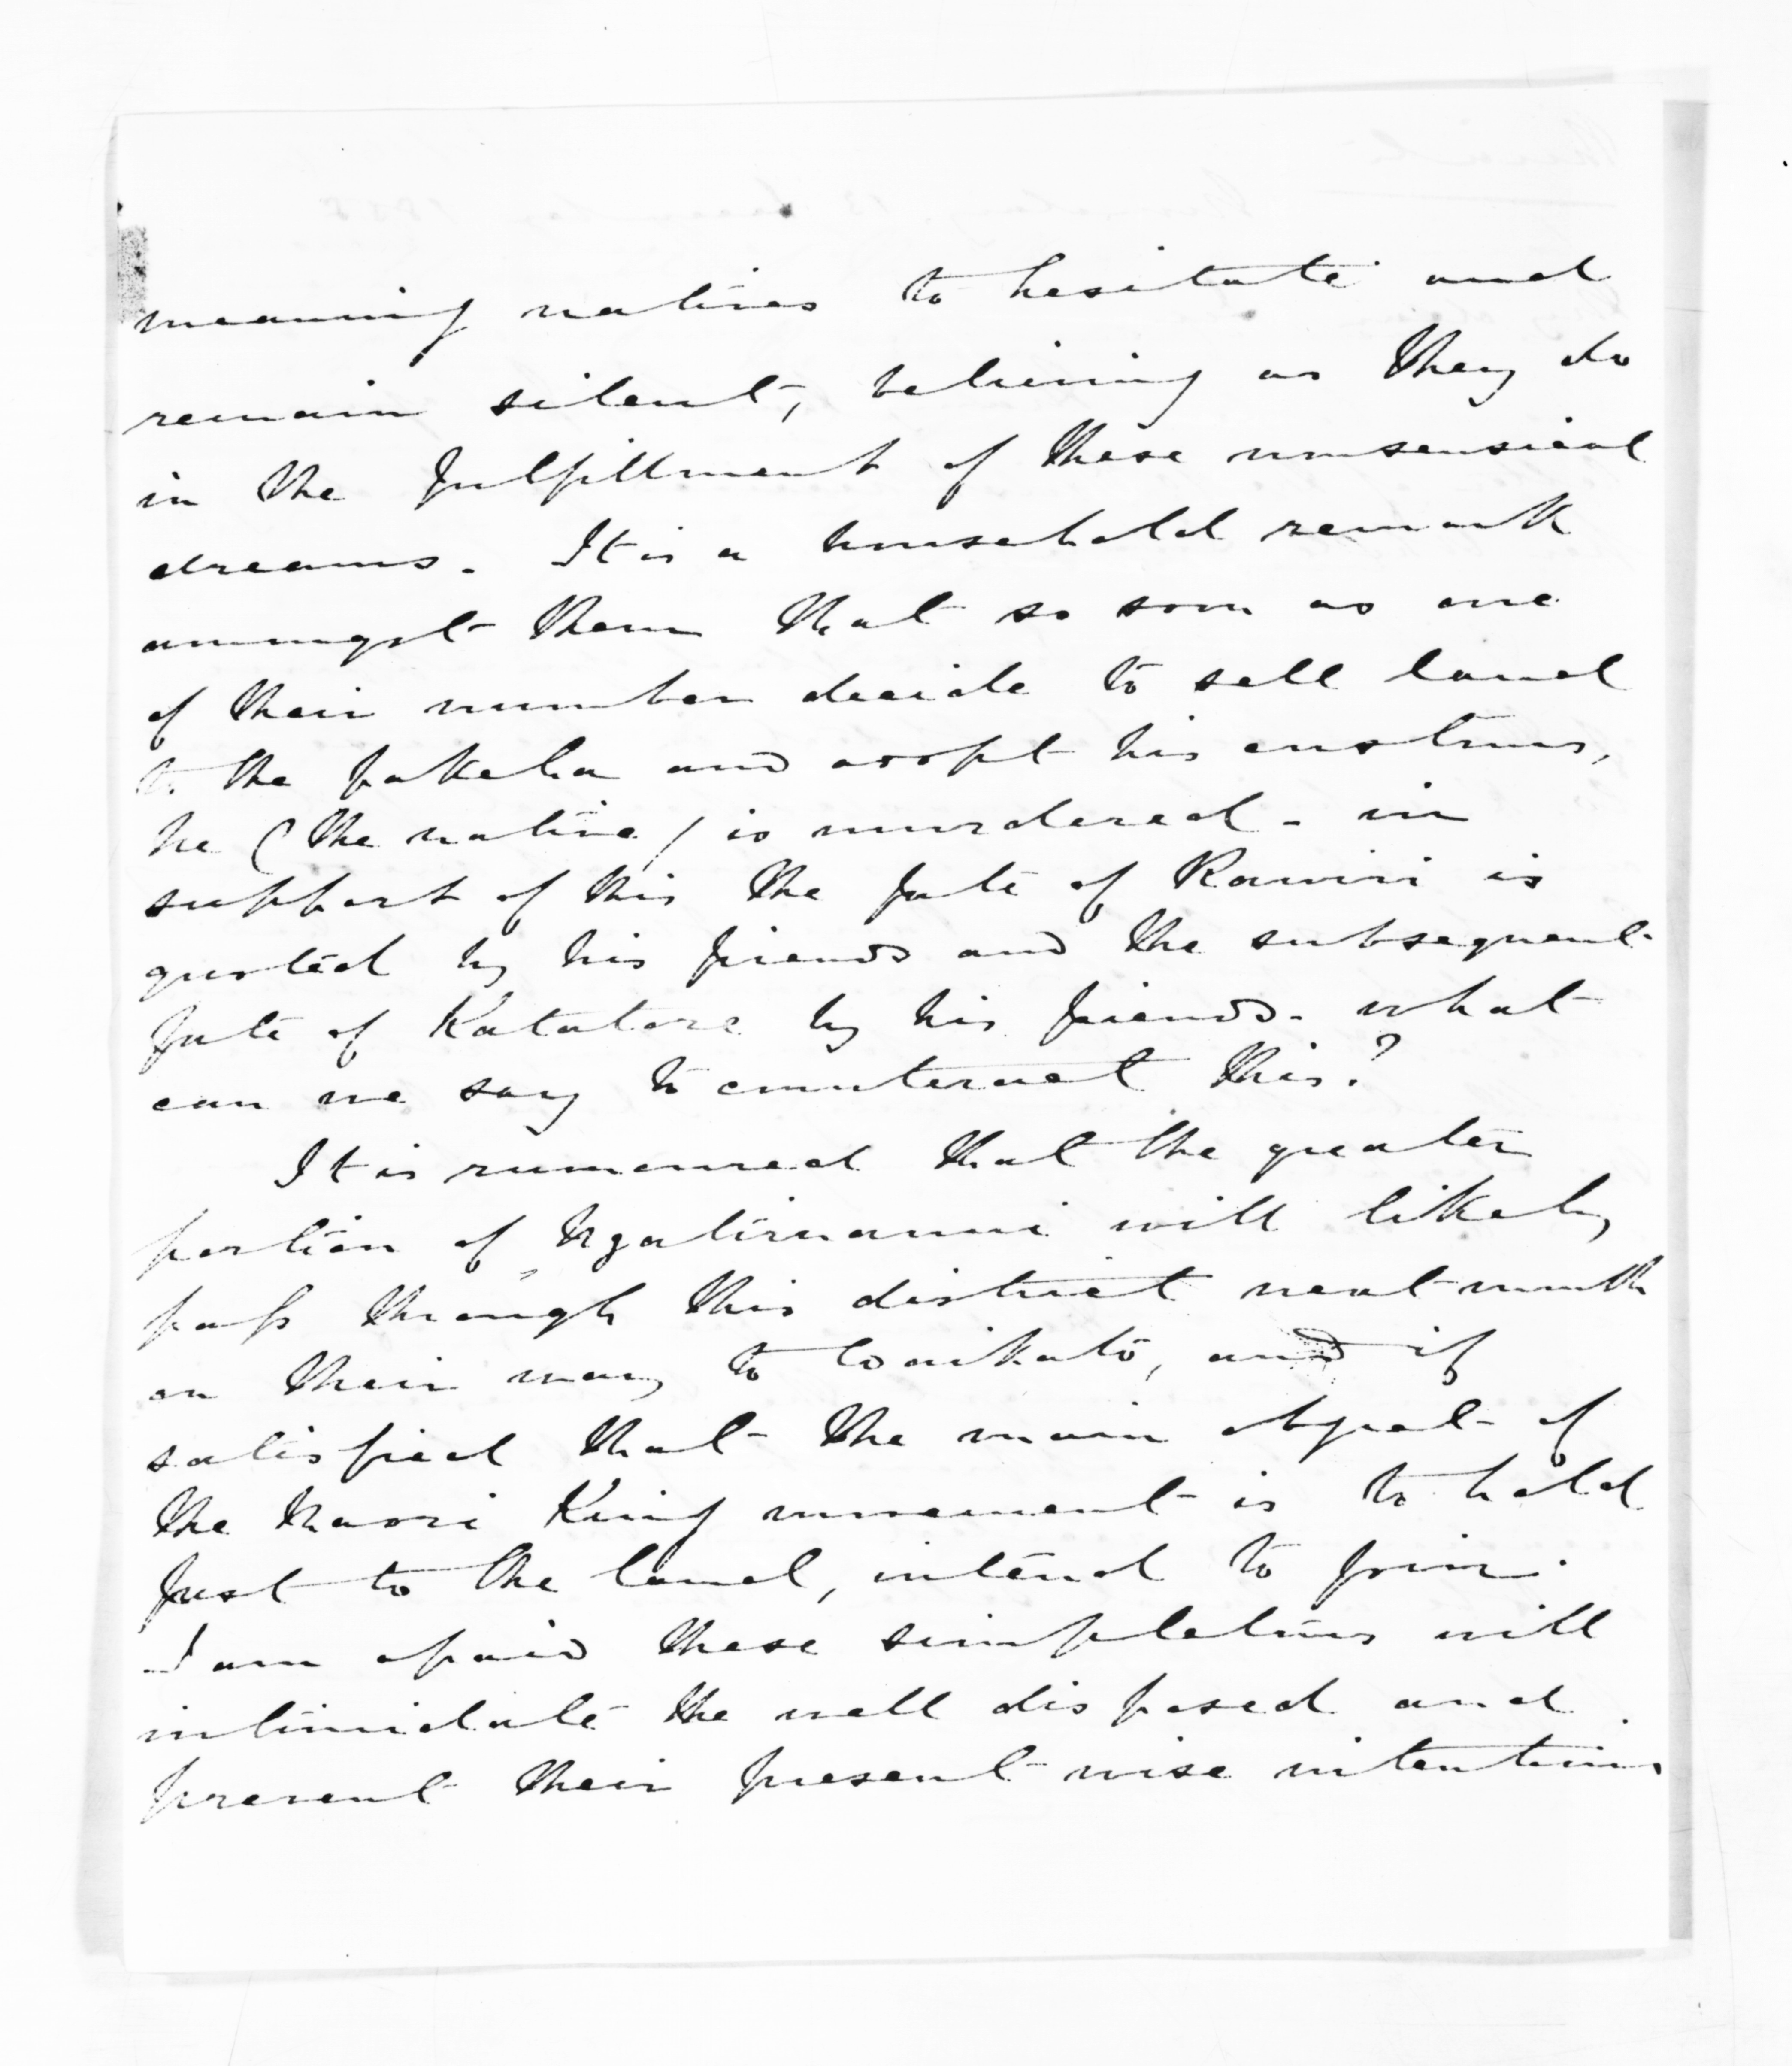 meaning natives to hesitate and
remain silent, believing as they do
in the fulfillment of these nonsensical
dreams. It is a household remark
amongst them that so soon as one
of their number decide to sell land
to the pakeha and adopt his customs,
he (the native) is murdered - in
support of this the fate of Rawiri is
quoted by his friends and the subsequent
fate of Katatore by his friends. what
can we say to counteract this?
It is rumoured that the greater
portion of Ngatiruanui will likely
pass through this district next month
on their way to Waikato, and if
satisfied that the main object of
the Maori King movement is to hold
fast to the land, intend to join.
I am afraid these simpletons will
intimidate the well disposed and
prevent their present wise intentions